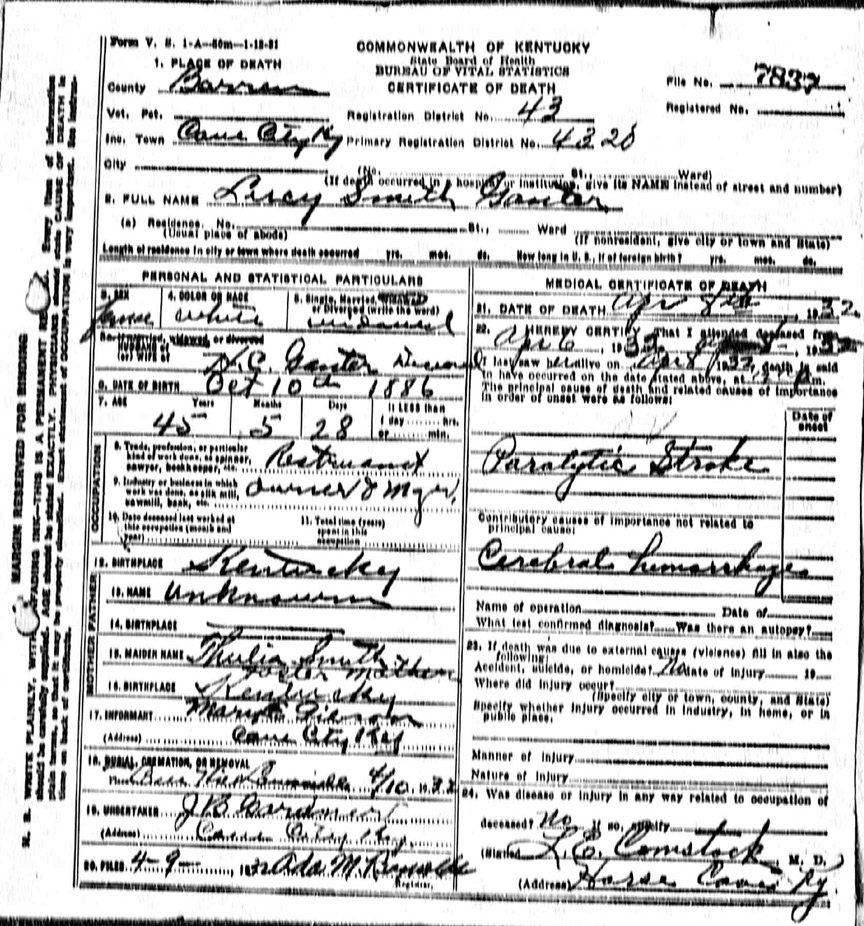 Form V. S. 1-A—50m—1-12-31
COMMONWEALTH OF KENTUCKY
State Board of Health
BUREAU OF VITAL STATISTICS
CERTIFICATE OF DEATH
1. PLACE OF DEATH
County Barren
File No. 7837
Registered No.
Vot. Pct.
Registration District No. 43
Inc. Town Cave City Ky Primary Registration District No. 4320
City (No. St., Ward)
(If death occurred in a hospital or institution, give its NAME instead of street and number)
2. FULL NAME Lucy Smith Ganter
(a) Residence. No. St., Ward
(Usual place of abode) (If nonresident, give city or town and State)
Length of residence in city or town where death occurred yrs. mos. ds. How long in U. S., if of foreign birth? yrs. mos. ds.
PERSONAL AND STATISTICAL PARTICULARS
3. SEX 4. COLOR OR RACE 5. Single, Married, Widowed or Divorced (write the word)
White Widowed
(or) WIFE of H. C. Ganter Deceased
6. DATE OF BIRTH Oct 10th 1886
7. AGE Years Months Days If LESS than
1 day hrs.
or min.
45 5 28
OCCUPATION
8. Trade, profession, or particular kind of work done, as spinner, sawyer, bookkeeper, etc.
9. Industry or business in which work was done, as silk mill, sawmill, bank, etc. Owner & Mgr.
10. Date deceased last worked at this occupation (month and year)
11. Total time (years) spent in this occupation
12. BIRTHPLACE Kentucky
FATHER
13. NAME Unknown
14. BIRTHPLACE
MOTHER
15. MAIDEN NAME Thelia Smith
Foster Mother
16. BIRTHPLACE Kentucky
17. INFORMANT
(Address) Cave City Ky
18. BURIAL, CREMATION, OR REMOVAL
4/10 1932
19. UNDERTAKER J. B.
(Address) Cave City Ky.
20. FILED 4-9- 1932 Ada M.
Registrar.
MEDICAL CERTIFICATE OF DEATH
21. DATE OF DEATH Apr 8th 1932
22. I HEREBY CERTIFY, That I attended deceased from
Apr 6, 1932
I last saw her alive on Apr 8 1932, death is said
to have occurred on the date stated above, at m.
The principal cause of death and related causes of importance
in order of onset were as follows:
Date of onset
Paralytic Stroke
Contributory causes of importance not related to
principal cause:
Cerebral hemorrhage
Name of operation Date of
What test confirmed diagnosis? Was there an autopsy?
23. If death was due to external causes (violence) fill in also the
following:
Accident, suicide, or homicide? No Date of injury 19
Where did injury occur?
(Specify city or town, county, and State)
Specify whether injury occurred in industry, in home, or in
public place.
Manner of injury
Nature of injury
24. Was disease or injury in any way related to occupation of
deceased? No If so, specify
(Signed) L. E. Comstock, M. D.
(Address) Horse Cave Ky
MARGIN RESERVED FOR BINDING